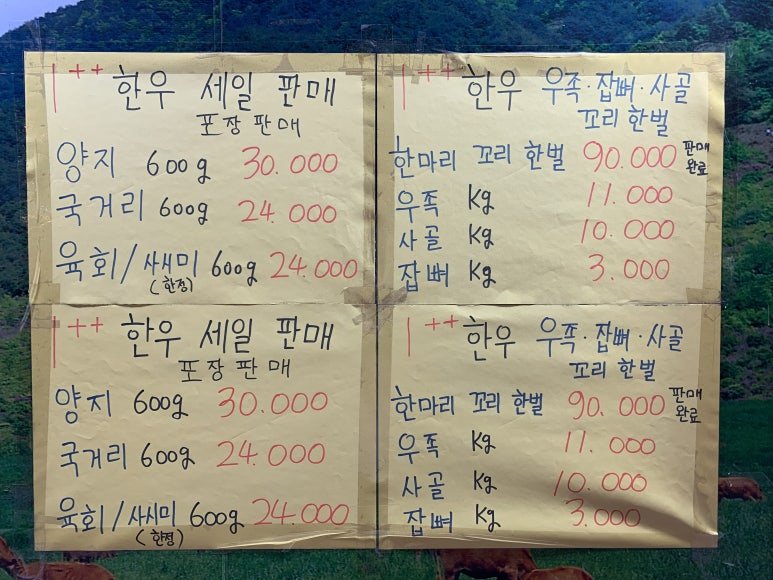 1++ 한우 세일 판매
포장판매
양지 600g 30.000
국거리 600g 24.000
육회/사시미 600g 24.000
(한정)
1++ 한우 우족·잡뼈·사골
꼬리 한벌
한마리 꼬리 한벌 90.000 판매
완료
우족 Kg 11.000
사골 Kg 10.000
잡뼈 Kg 3.000
1++ 한우 세일 판매
포장판매
양지 600g 30.000
국거리 600g 24.000
육회/사시미 600g 24.000
(한정)
1++ 한우 우족·잡뼈·사골
꼬리 한벌
한마리 꼬리 한벌 90.000 판매
완료
우족 Kg 11.000
사골 Kg 10.000
잡뼈 Kg 3.000